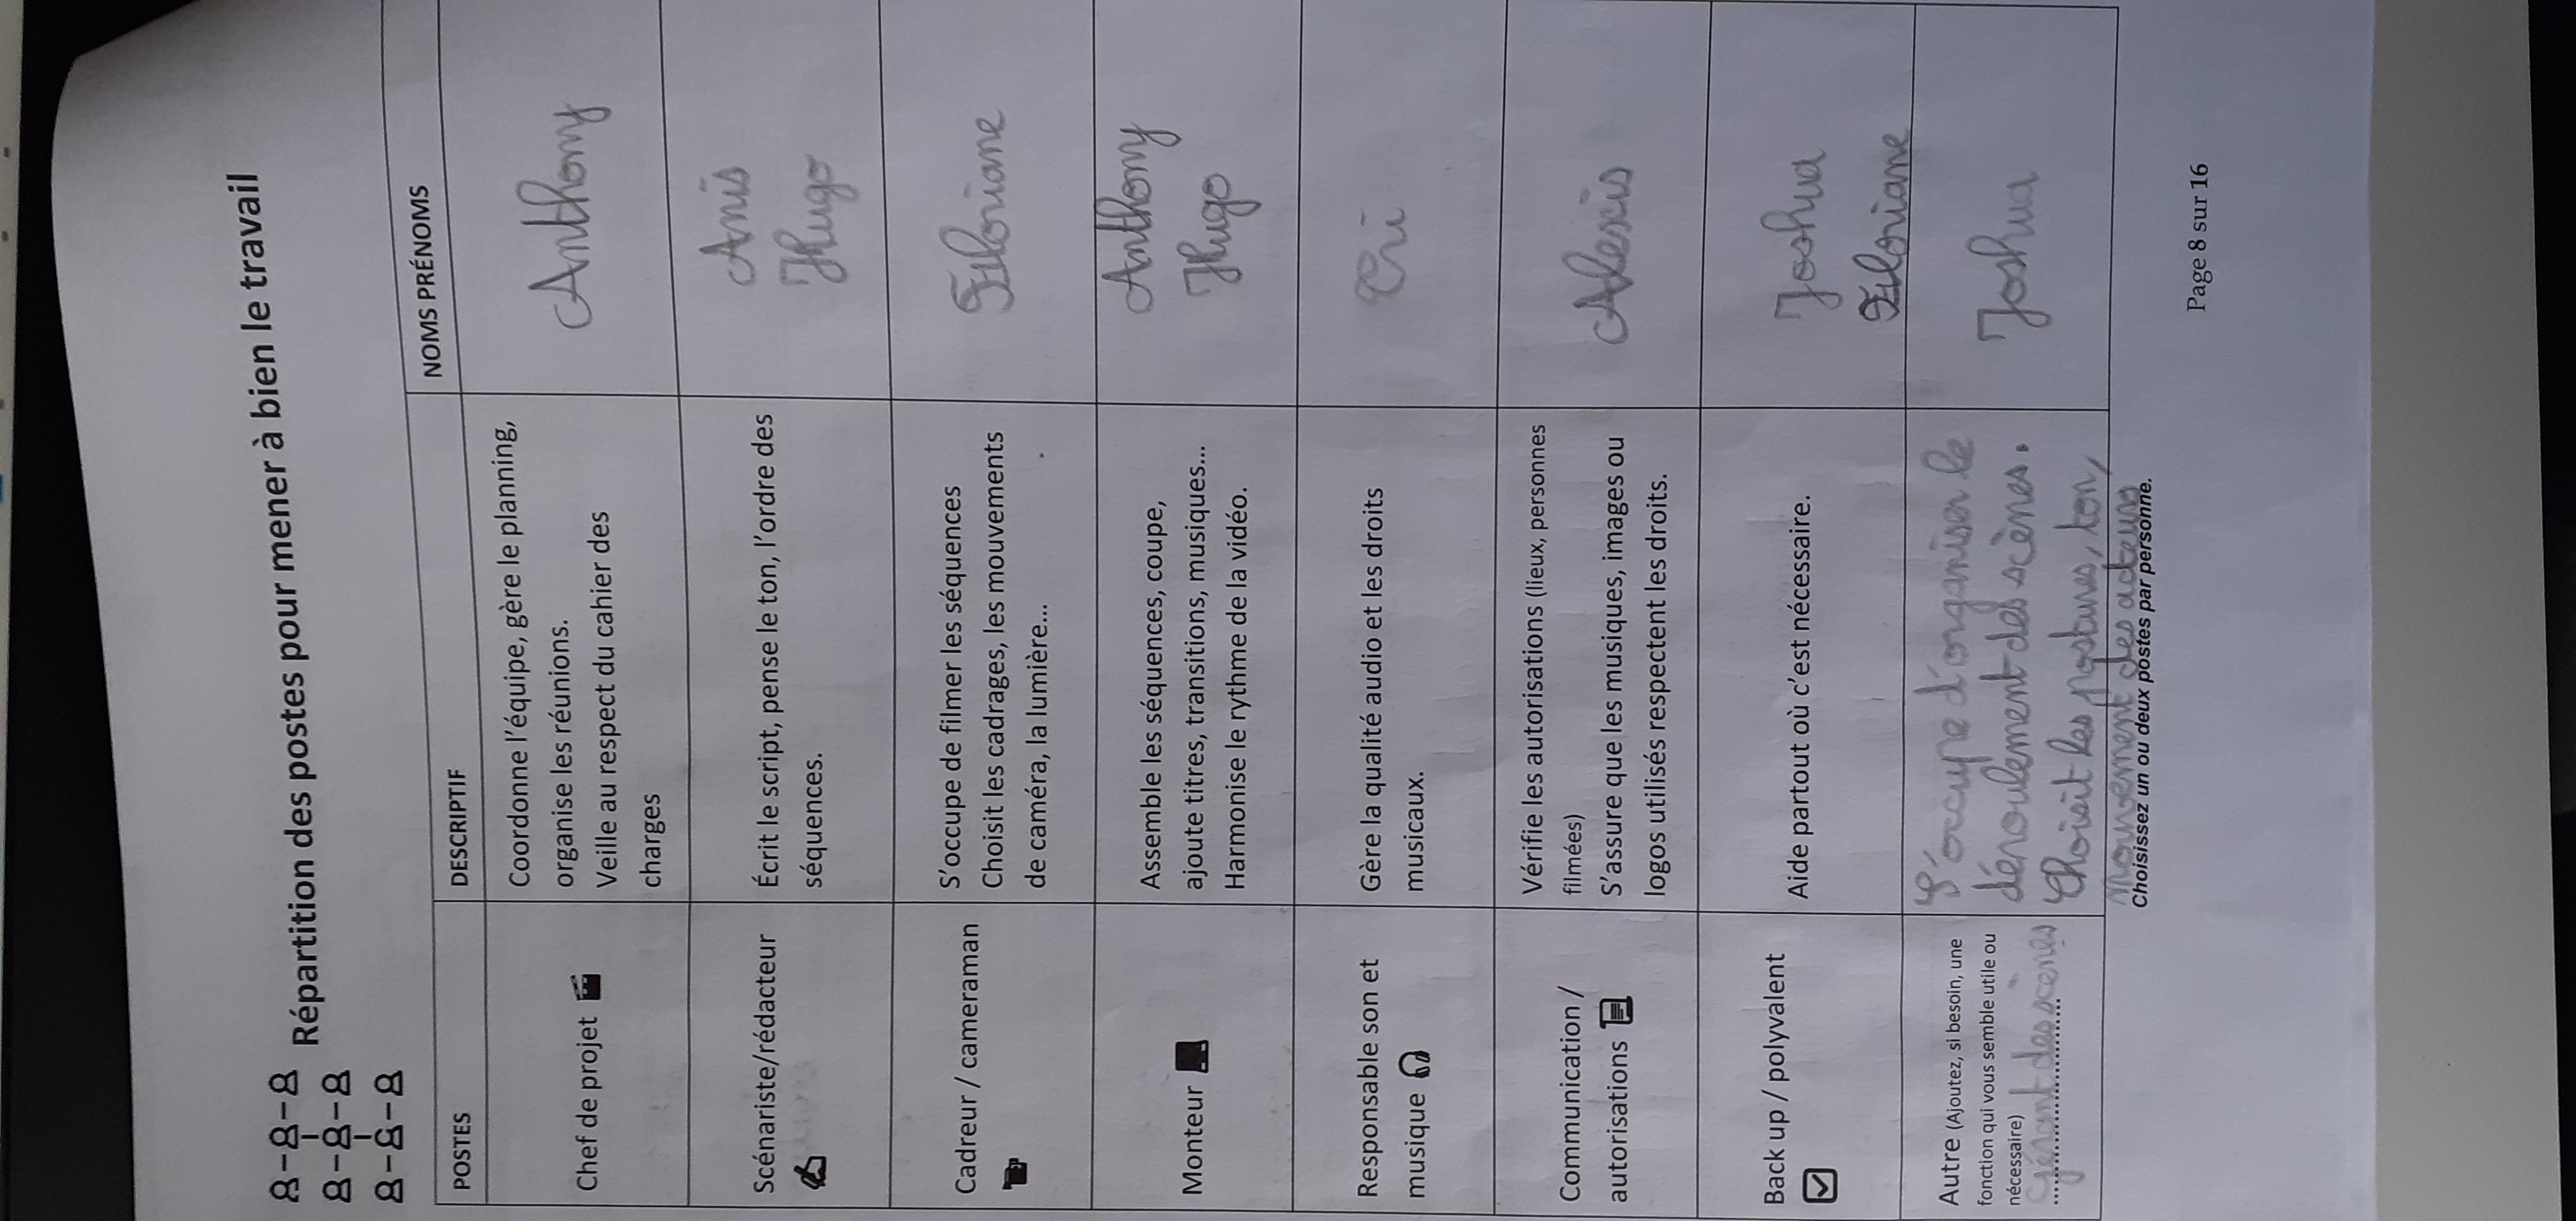 Répartition des postes pour mener à bien le travail
POSTES
DESCRIPTIF
NOMS PRÉNOMS
Chef de projet
Coordonne l'équipe, gère le planning,
organise les réunions.
Veille au respect du cahier des
charges
Anthony
Scénariste/rédacteur
Écrit le script, pense le ton, l'ordre des
séquences.
Anis
Hugo
Cadreur / cameraman
S'occupe de filmer les séquences
Choisit les cadrages, les mouvements
de caméra, la lumière...
Floriane
Monteur
Assemble les séquences, coupe,
ajoute titres, transitions, musiques...
Harmonise le rythme de la vidéo.
Anthony
Hugo
Responsable son et
musique
Gère la qualité audio et les droits
musicaux.
Communication /
autorisations
Vérifie les autorisations (lieux, personnes
filmées)
S'assure que les musiques, images ou
logos utilisés respectent les droits.
Alexis
Back up / polyvalent
Aide partout où c'est nécessaire.
Joshua
Floriane
Autre (Ajoutez, si besoin, une
fonction qui vous semble utile ou
nécessaire)
Gérant des scènes
S'occupe d'organiser le
déroulement des scènes.
Choisit les postures, ton,
mouvement des acteurs
Joshua
Choisissez un ou deux postes par personne.
Page 8 sur 16